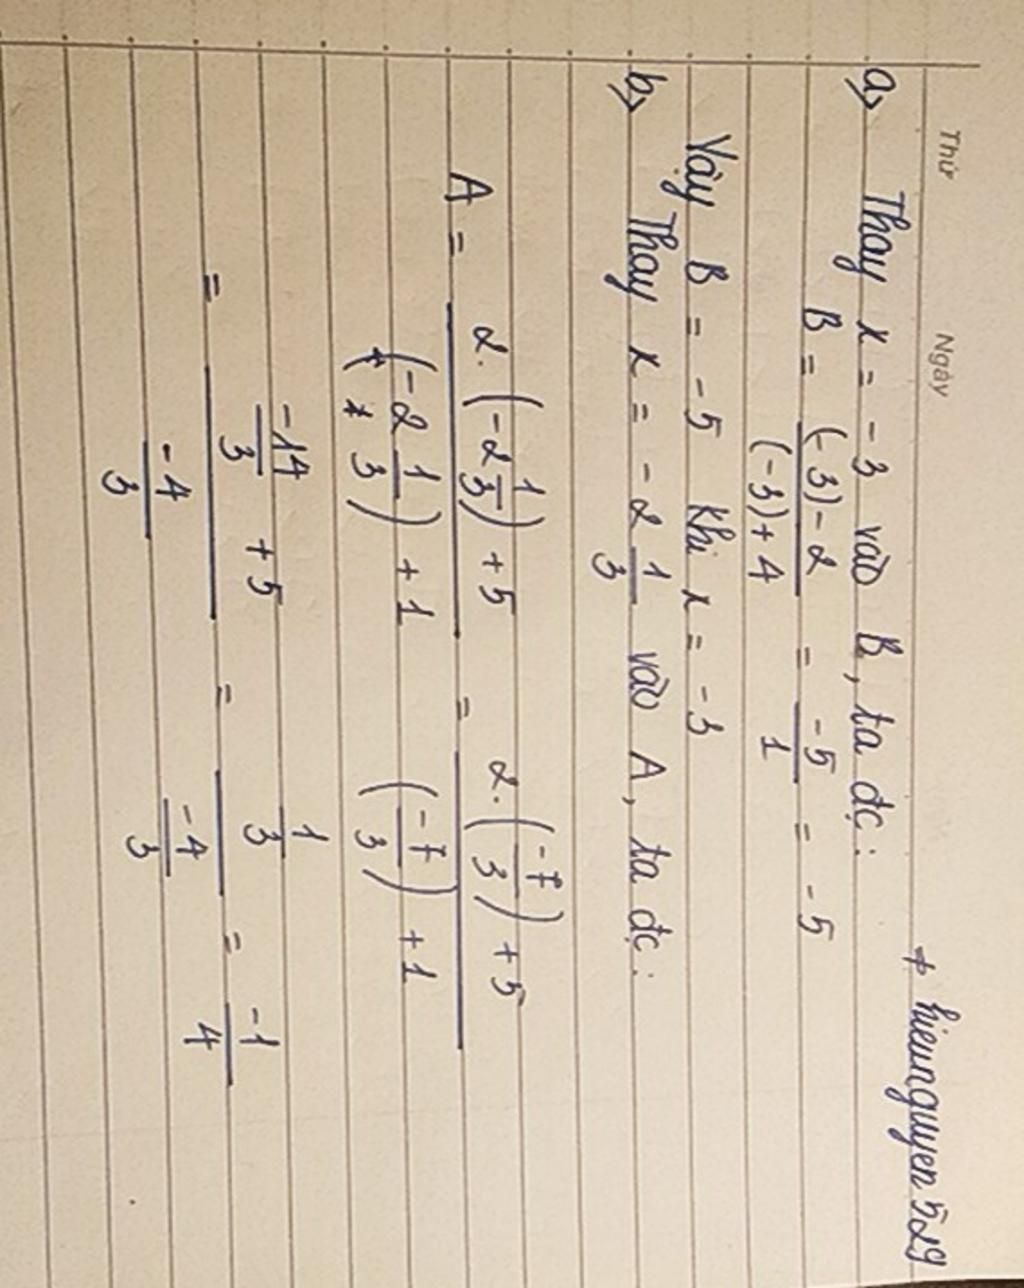 Thứ Ngày
* hieunguyen529
a, Thay x = -3 vào B, ta đc:
B = \frac{(-3)-2}{(-3)+4} = \frac{-5}{1} = -5
Vậy B = -5 khi x = -3
b, Thay x = -2\frac{1}{3} vào A, ta đc:
A = \frac{2.(-2\frac{1}{3})+5}{(-2\frac{1}{3})+1} = \frac{2.(\frac{-7}{3})+5}{(\frac{-7}{3})+1}
= \frac{\frac{-14}{3}+5}{\frac{-4}{3}} = \frac{\frac{1}{3}}{\frac{-4}{3}} = \frac{-1}{4}